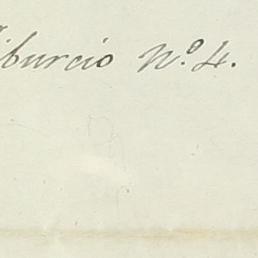 iburcio N.º 4.